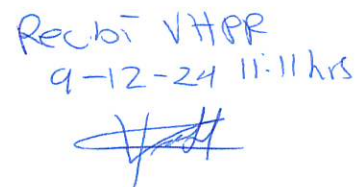 Recibí VHPR
9-12-24 11:11 hrs